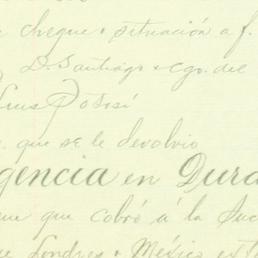 cheque o situación a f.
D. Santiago cgo. del
Luis Potosí
que se le devolvio
gencia en Dura
que cobró á la Suc
Londres o México est